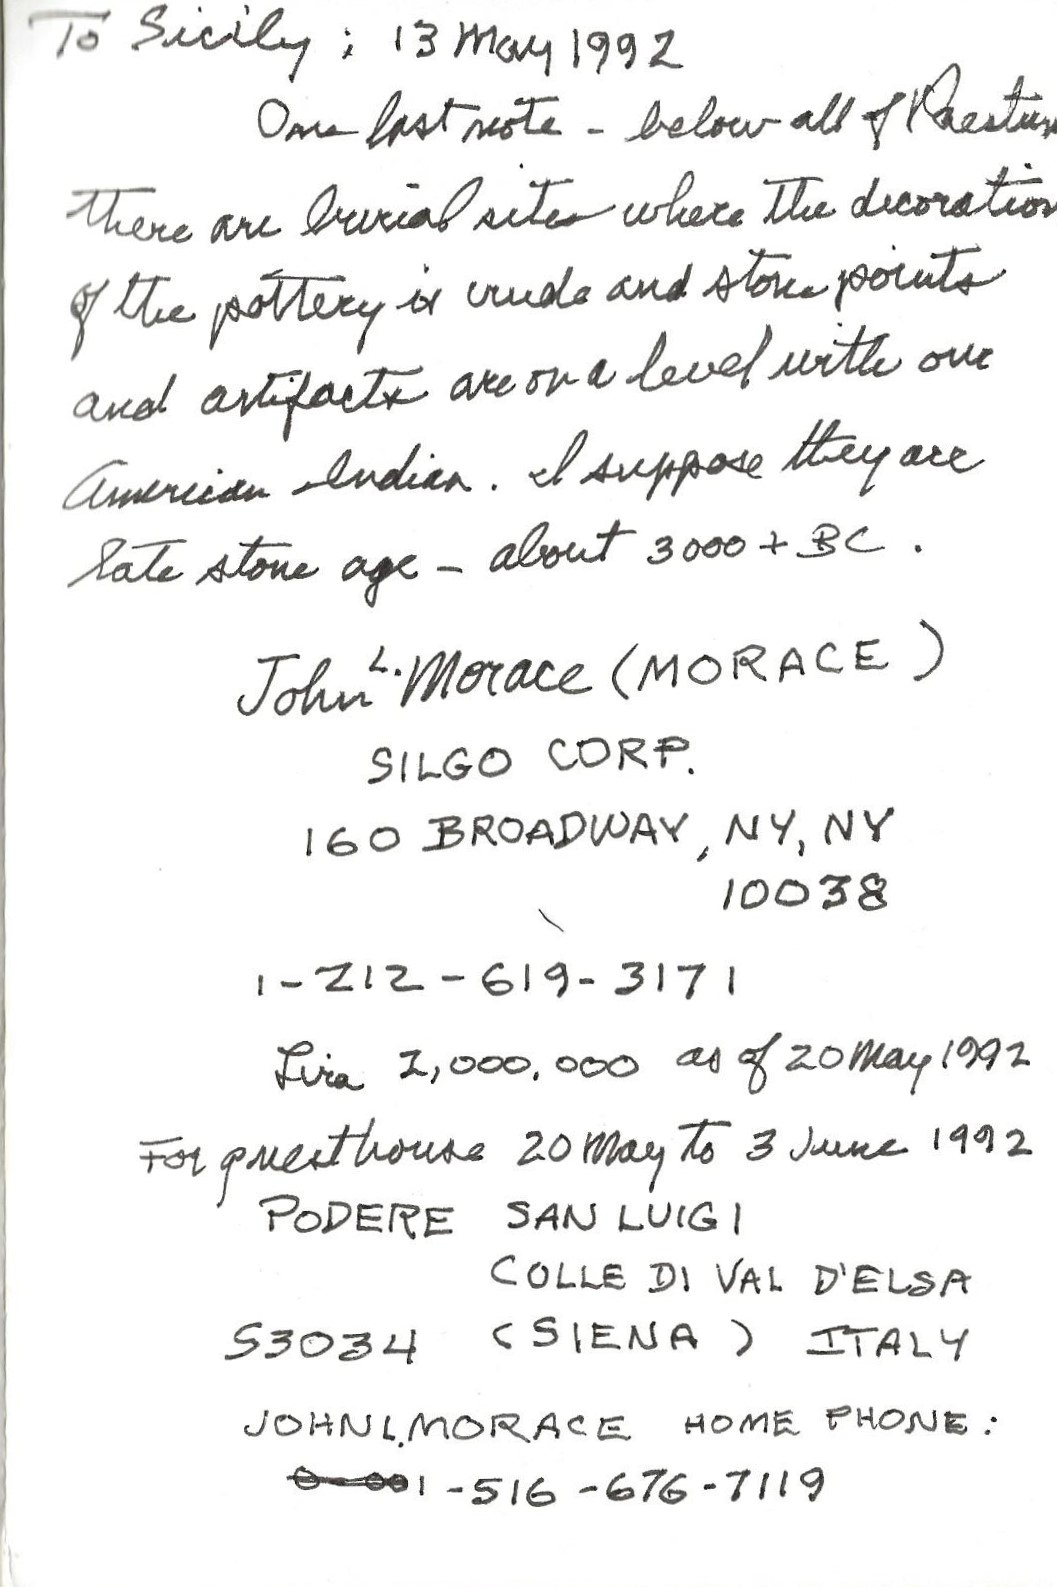 To Sicily; 13 May 1992
One last note - below all of Paestum
there are burial sites where the decoration
of the pottery is crude and stone points
and artifacts are on a level with our
American Indian. I suppose they are
late stone age - about 3000 + BC.
John L. Morace (MORACE)
SILGO CORP.
160 BROADWAY, NY, NY
10038
1-212-619-3171
Lira 2,000,000 as of 20 May 1992
For guesthouse 20 May to 3 June 1992
PODERE SAN LUIGI
COLLE DI VAL D'ELSA
53034 (SIENA) ITALY
JOHN L. MORACE HOME PHONE:
1-516-676-7119